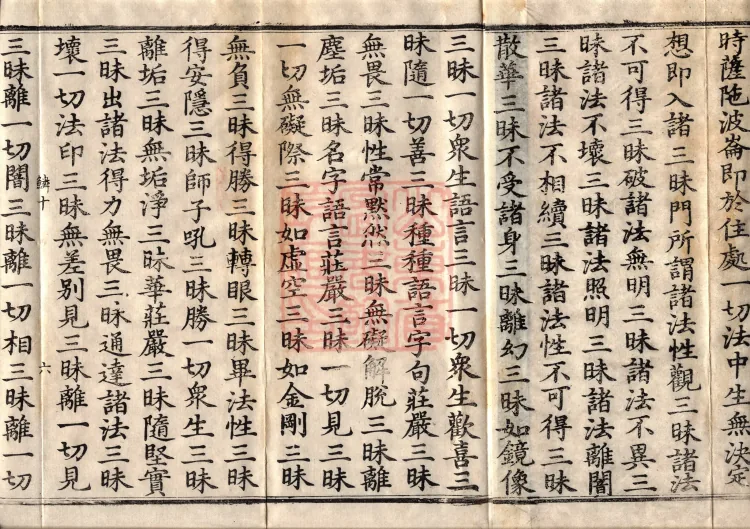 時薩陁波崙即於住處一切法中生無決定
想即入諸三昧門所謂諸法性觀三昧諸法
不可得三昧破諸法無明三昧諸法不異三
昧諸法不壞三昧諸法照明三昧諸法離闇
三昧諸法不相續三昧諸法性不可得三昧
散華三昧不受諸身三昧離幻三昧如鏡像
三昧一切衆生語言三昧一切衆生歡喜三
昧隨一切善三昧種種語言字句莊嚴三昧
無畏三昧性常默然三昧無礙解脫三昧離
塵垢三昧名字語言莊嚴三昧一切見三昧
一切無礙際三昧如虛空三昧如金剛三昧
無負三昧得勝三昧轉眼三昧畢法性三昧
得安隱三昧師子吼三昧勝一切衆生三昧
離垢三昧無垢淨三昧華莊嚴三昧隨堅實
三昧出諸法得力無畏三昧通達諸法三昧
壞一切法印三昧無差別見三昧離一切見
鱗十 六
三昧離一切闇三昧離一切相三昧離一切